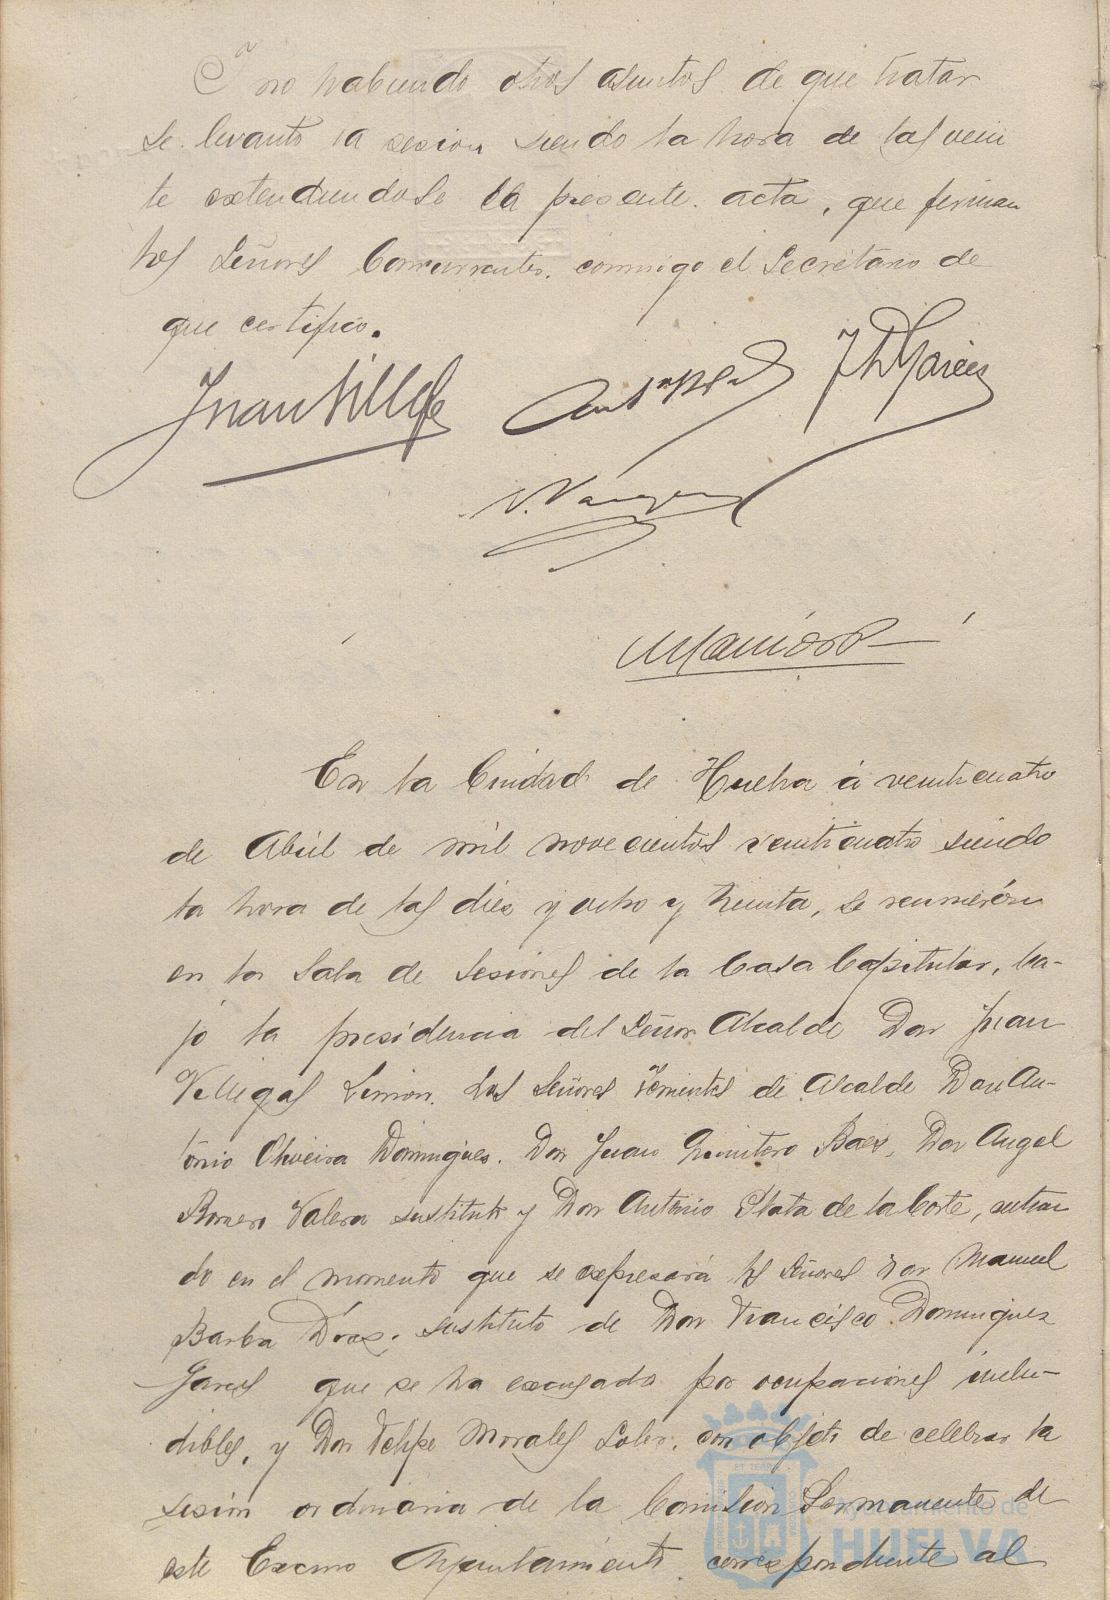 Y no habiendo otros asuntos de que tratar
se levantó la sesion siendo la hora de las vein
te extendiendose la presente acta, que firman
los Señores Concurrentes, conmigo el Secretario de
que certifico.
Juan Villegas
V. Vazquez
En la Ciudad de Huelva á veinticuatro
de Abril de mil novecientos veinticuatro siendo
la hora de las diez y ocho y treinta, se reunierón
en la Sala de Sesiones de la Casa Capitular, ba-
jo la presidencia del Señor Alcalde Don Juan
Villegas Limon. Los Señores Tenientes de Alcalde Don An-
tonio Oliveira Dominguez, Don Juan Quintero Baez, Don Angel
Romero Valera sustituto y Don Antonio Plata de la Corte, entran
do en el momento que se expresará los Señores Don Manuel
Barba Diaz, sustituto de Don Francisco Dominguez
Garces que se ha excusado por ocupaciones inelu-
dibles, y Don Felipe Morales Soler, con objeto de celebrar la
sesion ordinaria de la Comision Permanente de
este Excmo Ayuntamiento correspondiente al
Ayuntamiento de
HUELVA